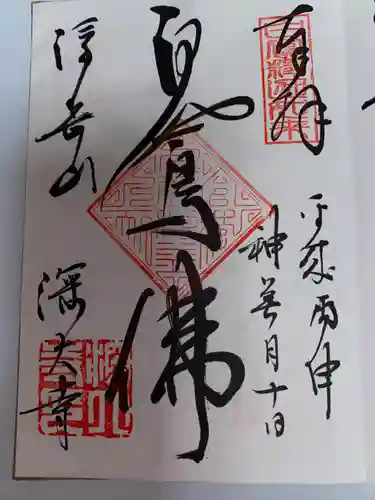 奉拝
平成丙申
神無月十日
白鳳佛
浮岳山
深大寺